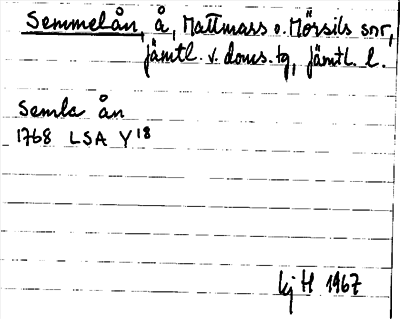 Semmelån, å, Mattmass o. Mörsils snr,
jämtl. v. doms. tg, jämtl. l.
Semla ån
1768 LSA Y18
kj H 1967